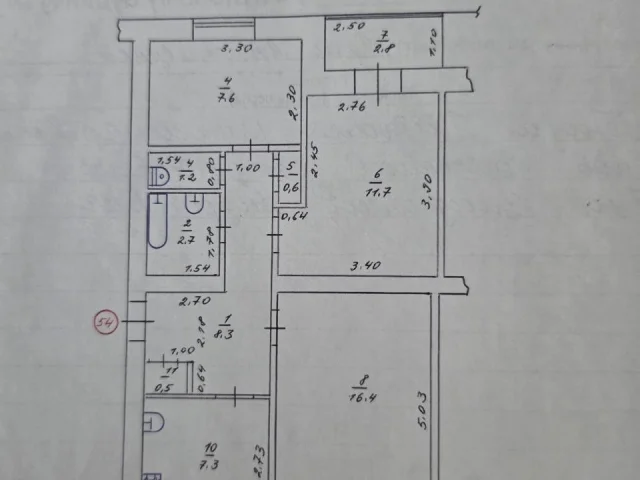 2.50
7
2.8
1.10
3.30
4
7.6
2.30
2.76
2.45
6
11.7
3.90
1.54
4
1.2
0.80
1.00
5
0.6
0.64
2
2.7
1.78
1.54
3.40
2.70
54
1
8.3
2.18
1.00
11
0.5
0.64
8
16.4
5.03
10
7.3
2.73